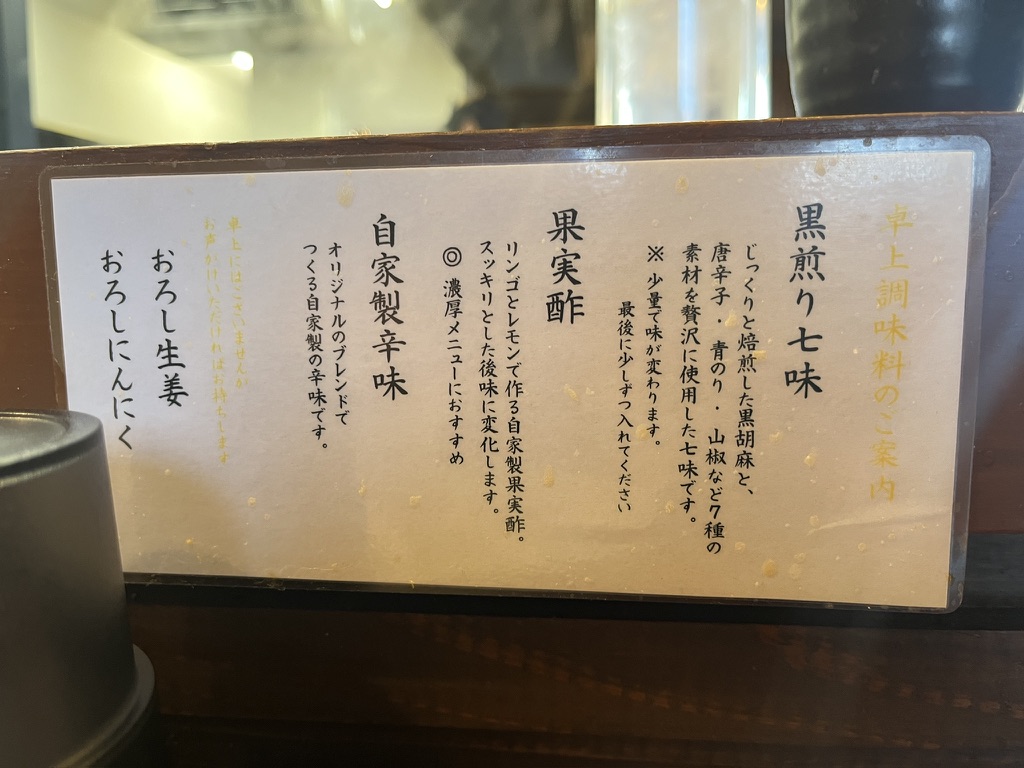 卓上調味料のご案内
黒煎り七味
じっくりと焙煎した黒胡麻と、
唐辛子・青のり・山椒など7種の
素材を贅沢に使用した七味です。
※ 少量で味が変わります。
最後に少しずつ入れてください
果実酢
リンゴとレモンで作る自家製果実酢。
スッキリとした後味に変化します。
◎ 濃厚メニューにおすすめ
自家製辛味
オリジナルのブレンドで
つくる自家製の辛味です。
卓上にはございませんが
お声がけいただければお持ちします
おろし生姜
おろしにんにく